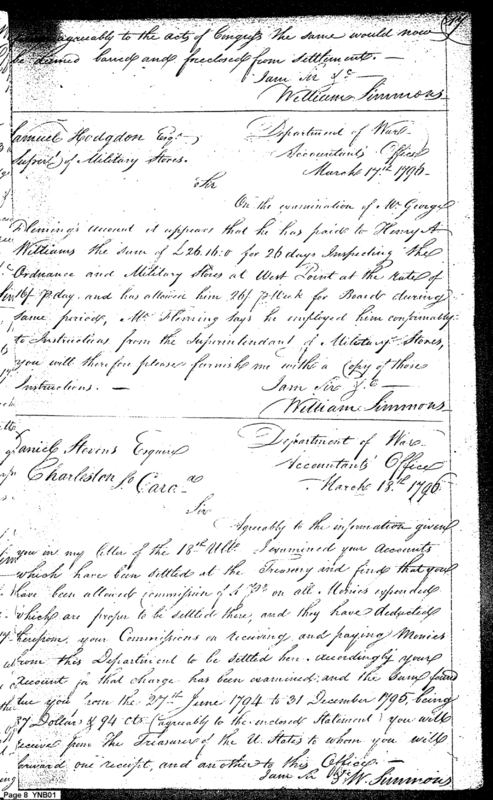 agreably to the acts of Congress the same would now
be deemed barred and foreclosed from settlement. —
Iam Sir &c —
William Simmons
Samuel Hodgdon Esqr
Supert of Military Stores.
Department of War
Accountants Office
March 17th 1796
Sir
On the examination of Mr George
Flemings account it appears that he has paid to Henry A
Williams the sum of £26.16.0 for 26 days Inspecting the
Ordnance and Military Stores at West Point at the rate of
16/ P day. and has allowed him 26/ P Week for Board during
same period, Mr Fleming says he employed him conformably
to Instructions from the Superintendant of Military Stores,
you will therefore please furnish me with a Copy of those
Instructions. —
Iam Sir &c —
William Simmons
Daniel Stevens Esquire
Charleston So Cara
Department of War
Accountants Office
March 18th 1796
Sir
Agreably to the information given
you in my letter of the 18th Ulto I examined your Accounts
which have been settled at the Treasury and find that you
have been allowed commission of on all Monies expended
which are proper to be settled there, and they have deducted
thereupon, your Commissions on receiving and paying Monies
from this Department to be settled here. Accordingly your
account for that charge has been examined, and the Sum found
due you from the 27th June 1794 to 31 December 1795, being
37 Dollars & 94 cts (agreably to the enclosed Statement) you will
receive from The Treasurer of the U. States to whom you will
forward one receipt, and another to this Office —
Iam Sir &c W. Simmons
Page 8 YNB01